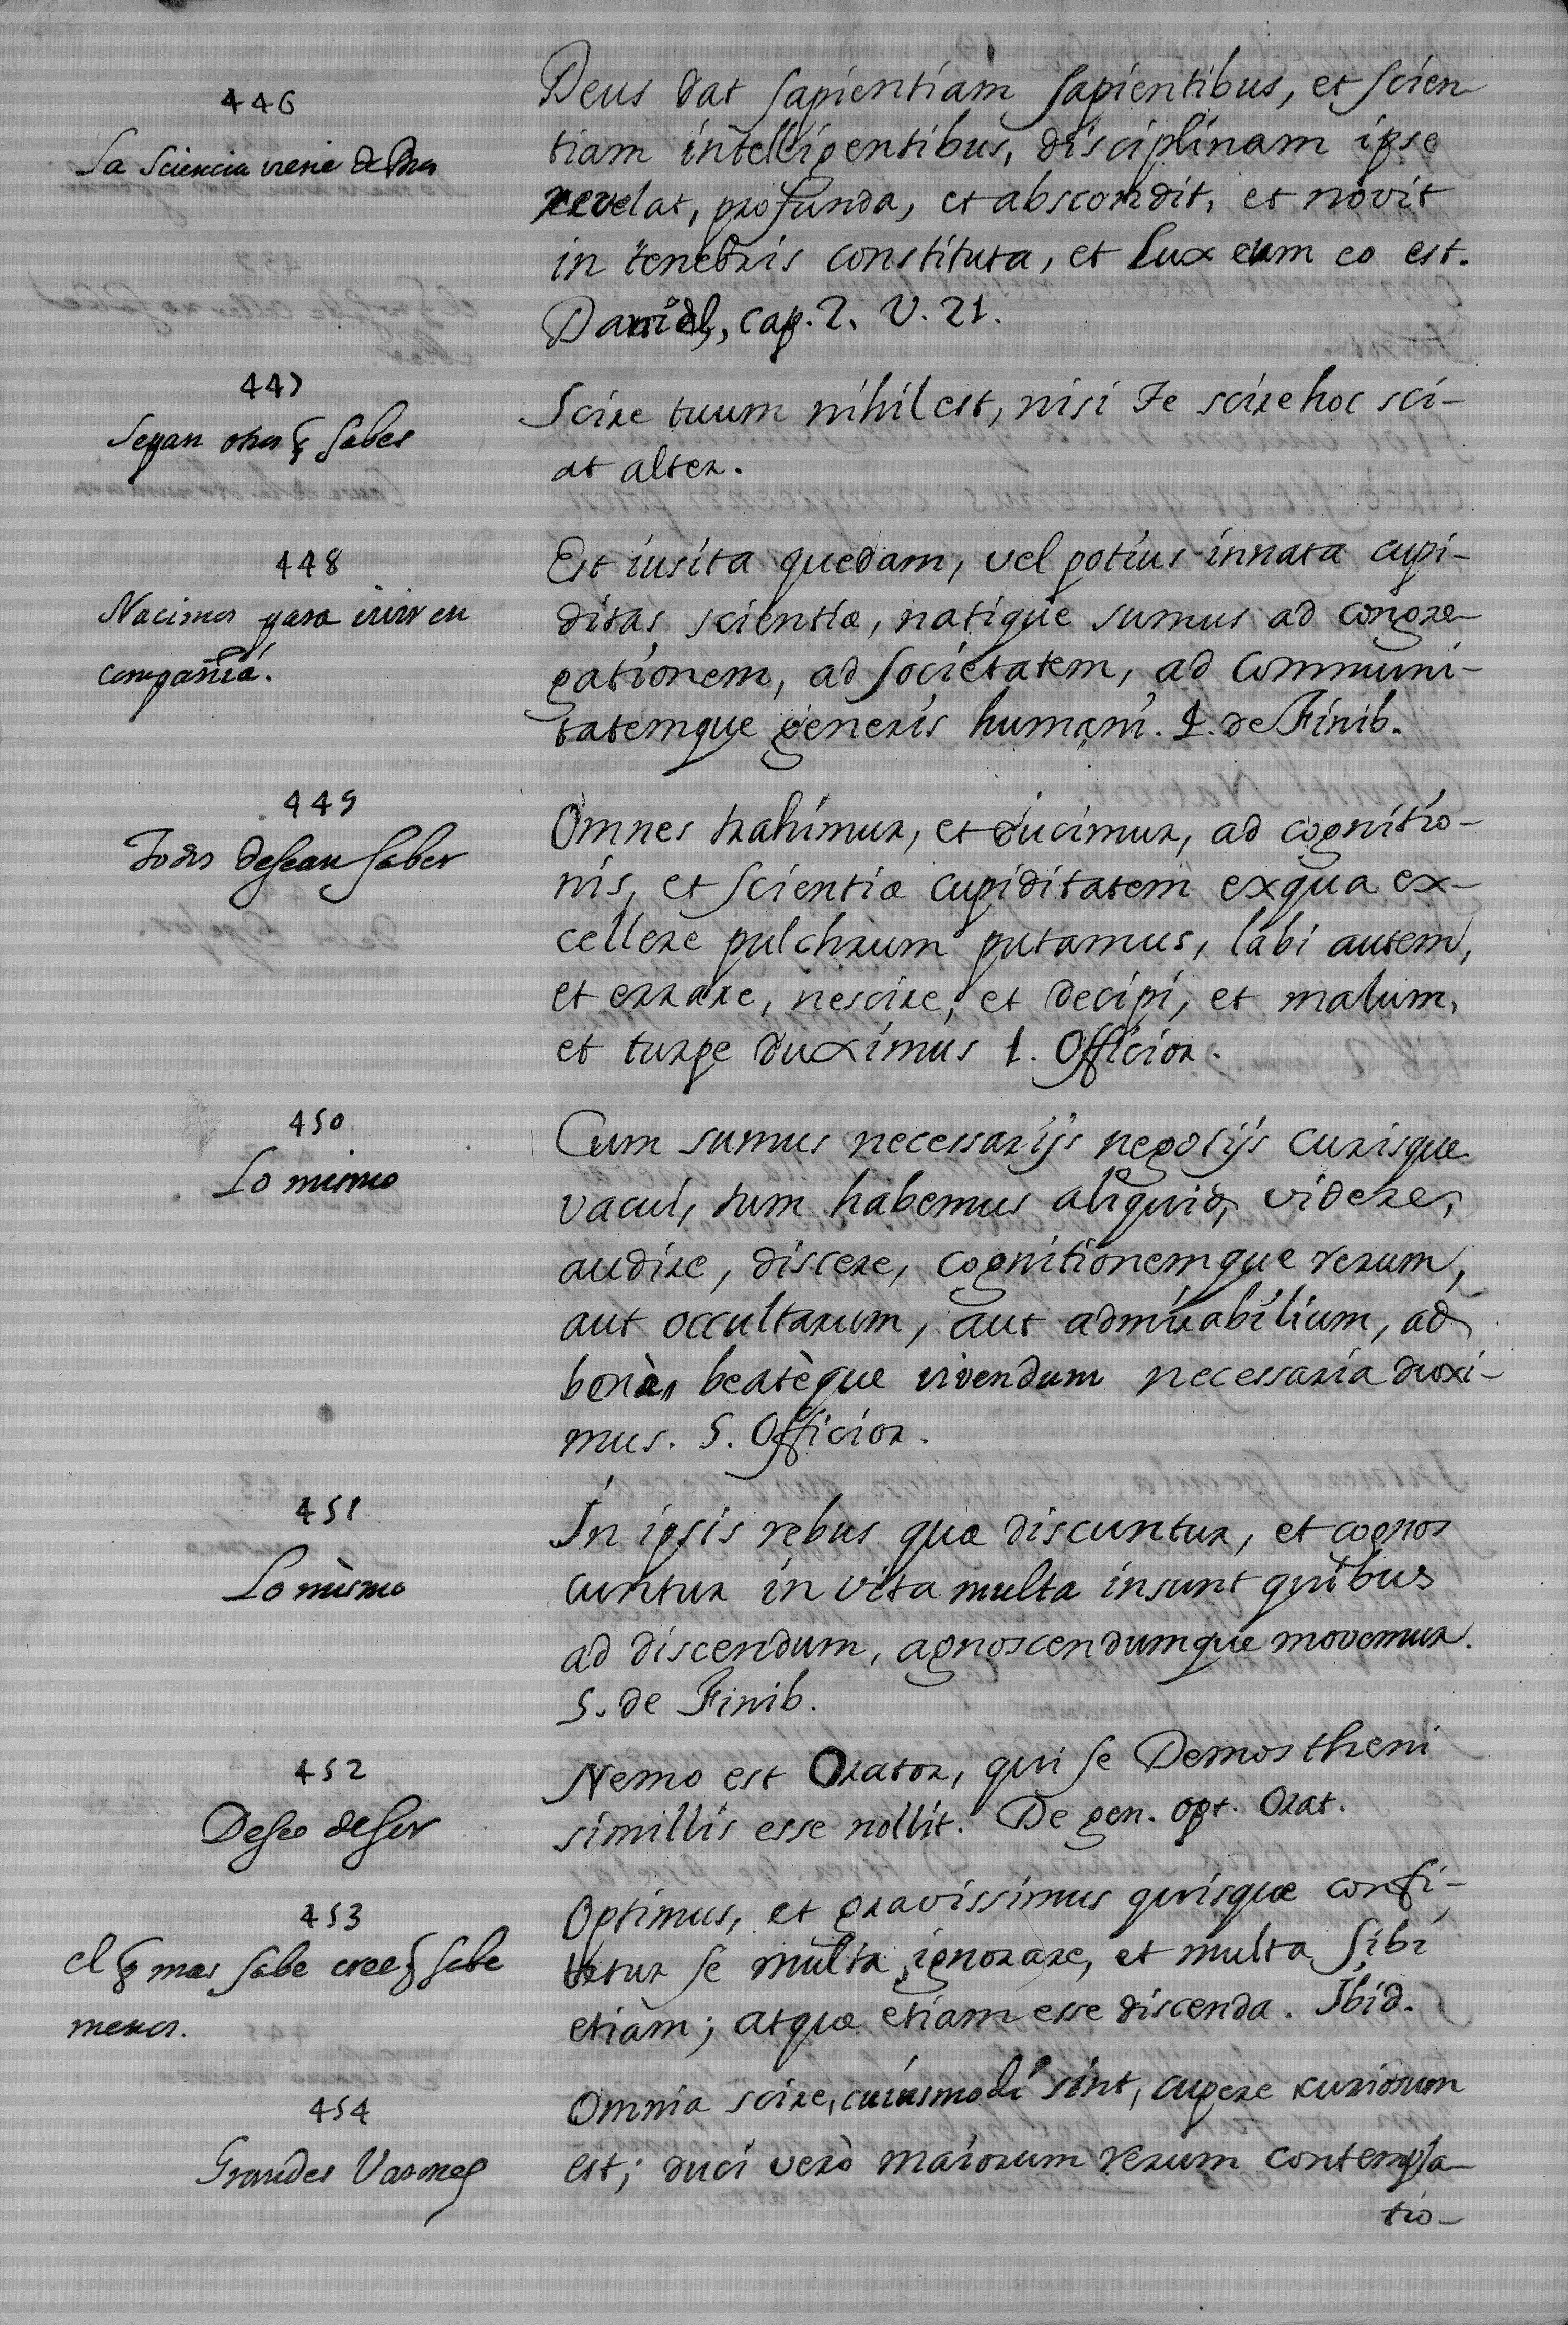 446
La Sciencia viene de Dios
Deus dat sapientiam sapientibus, et scien-
tiam intelligentibus, disciplinam ipse
revelat, profunda, et abscondit, et novit
in tenebris constituta, et Lux cum eo est.
Daniel, cap. 2. V. 21.
447
Sepan otros q̃ sabes
Scire tuum nihil est, nisi Te scire hoc sci-
at alter.
448
Nacimos para vivir en
compañia.
Est iusita quedam, vel potius innata cupi-
ditas scientiæ, natique sumus ad congre-
gationem, ad societatem, ad communi-
tatemque generis humani. 1. de Finib.
449
Todos desean saber
Omnes trahimur, et ducimur, ad cognitio-
nis, et scientiæ cupiditatem ex qua ex-
cellere pulchrum putamus, labi autem,
et errare, nescire, et decipi, et malum,
et turpe duximus 1. Officior.
450
Lo mismo
Cum sumus necessarijs negotijs curisque
vacui, tum habemus aliquid, videre,
audire, discere, cognitionemque rerum,
aut occultarum, aut admirabilium, ad
bonè, beatèque vivendum necessaria duxi-
mus. 5. Officior.
451
Lo mismo
In ipsis rebus quæ discuntur, et cognos
cuntur in vita multa insunt quibus
ad discendum, agnoscendumque movemur.
5. de Finib.
452
Deseo de ser
Nemo est Orator, qui se Demostheni
simillis esse nollit. De gen. opt. Orat.
453
el q̃ mas sabe cree q̃ sabe
menos.
Optimus, et gravissimus quisquæ confi-
tetur se multa ignorare, et multa sibi
etiam; atquæ etiam esse discenda. Ibid.
454
Grandes Varones
Omnia scire, cuiusmodi sint, cupere curiosum
est; duci verò maiorum rerum contempla-
tio-